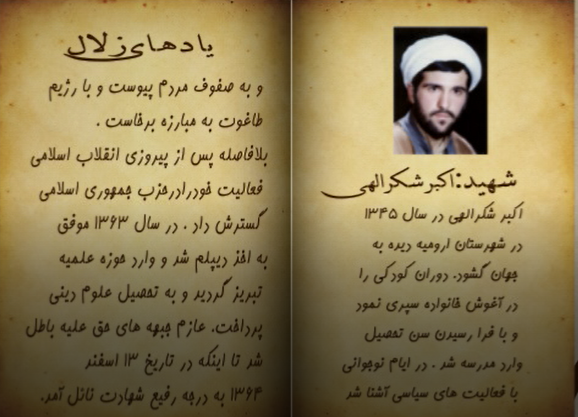 شهید:اکبر شکرالهی
اکبر شکرالهی در سال ۱۳۴۵
در شهرستان ارومیه دیده به
جهان گشود. دوران کودکی را
در آغوش خانواده سپری نمود
و با فرا رسیدن سن تحصیل
وارد مدرسه شد . در ایام نوجوانی
با فعالیت های سیاسی آشنا شد
یادهای زلال
و به صفوف مردم پیوست و با رژیم
طاغوت به مبارزه برخاست .
بلافاصله پس از پیروزی انقلاب اسلامی
فعالیت خود رادرحزب جمهوری اسلامی
گسترش داد . در سال ۱۳۶۳ موفق
به اخذ دیپلم شد و وارد حوزه علمیه
تبریز گردید و به تحصیل علوم دینی
پرداخت. عازم جبهه های حق علیه باطل
شد تا اینکه در تاریخ ۱۳ اسفند
۱۳۶۴ به درجه رفیع شهادت نائل آمد.